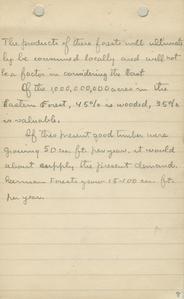 The products of these forests will ultimate-
ly be consumed locally and will not
be a factor in considering the East
Of the 1,000,000,000 acres in the
Eastern Forest, 45% is wooded, 35%
is valuable.
If this present good timber were
growing 50 cu. ft. per year, it would
about supply the present demand.
German Forests grow 15-100 cu. ft.
per year.